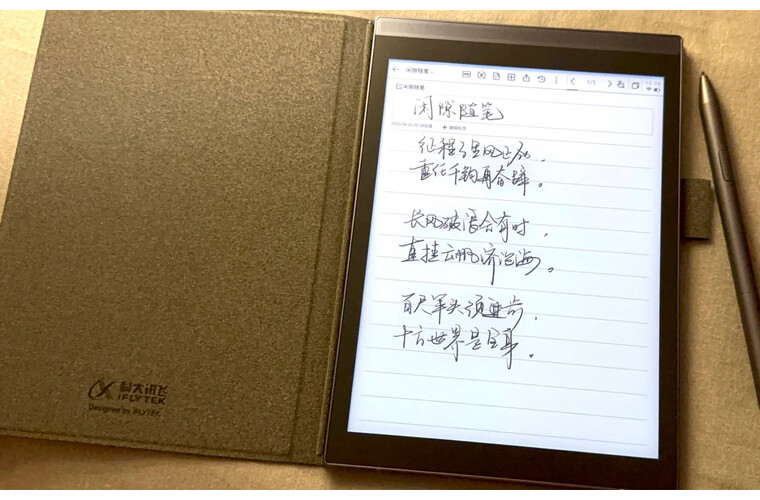 科大讯飞
iFLYTEK
Designed by iFLYTEK
闲隙随笔
1/1
闲隙随笔
闲隙随笔
编辑标签
征程万里风正
重任千钧再奋蹄。
长风破浪会有时，
直挂云帆济沧海。
百尺竿头须进步，
十方世界是全身。